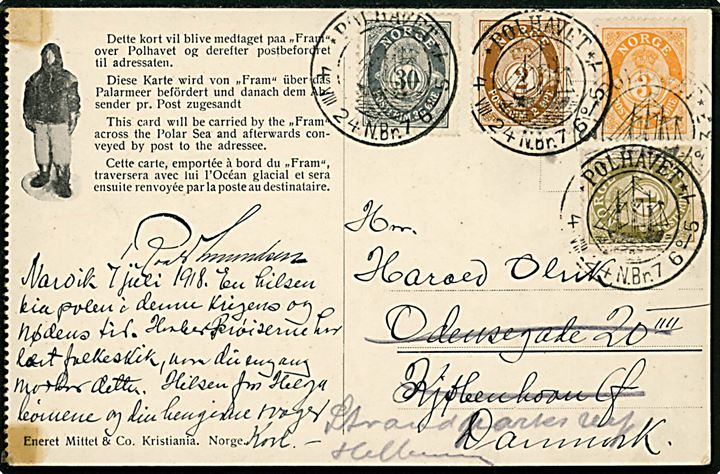 Dette kort vil blive medtaget paa „Fram"
over Polhavet og derefter postbefordret
til adressaten.
Diese Karte wird von „Fram" über das
Palarmeer befördert und danach dem Ab-
sender pr. Post zugesandt
This card will be carried by the „Fram"
across the Polar Sea and afterwards con-
veyed by post to the adressee.
Cette carte, emportée à bord du „Fram",
traversera avec lui l'Océan glacial et sera
ensuite renvoyée par la poste au destinataire.
Roald Amundsen
Narvik 7 juli 1918. En hilsen
fra polen i denne krigens og
nødens tid.
lært folkeskik, naar du engang
mottar dette. Hilsen fra Helga
og din hengivne svoger
Karl.
Eneret Mittet & Co. Kristiania. Norge.
NORGE
30
NORGE
2
NORGE
3
NORGE
POLHAVET
4 VIII 24 N.Br. 76°-5
POLHAVET
4 VIII 24 N.Br. 76°-5
POLHAVET
4 VIII 24 N.Br. 76°-5
Hr.
Harald
Odensegade 20
Kjøbenhavn Ø
Danmark.